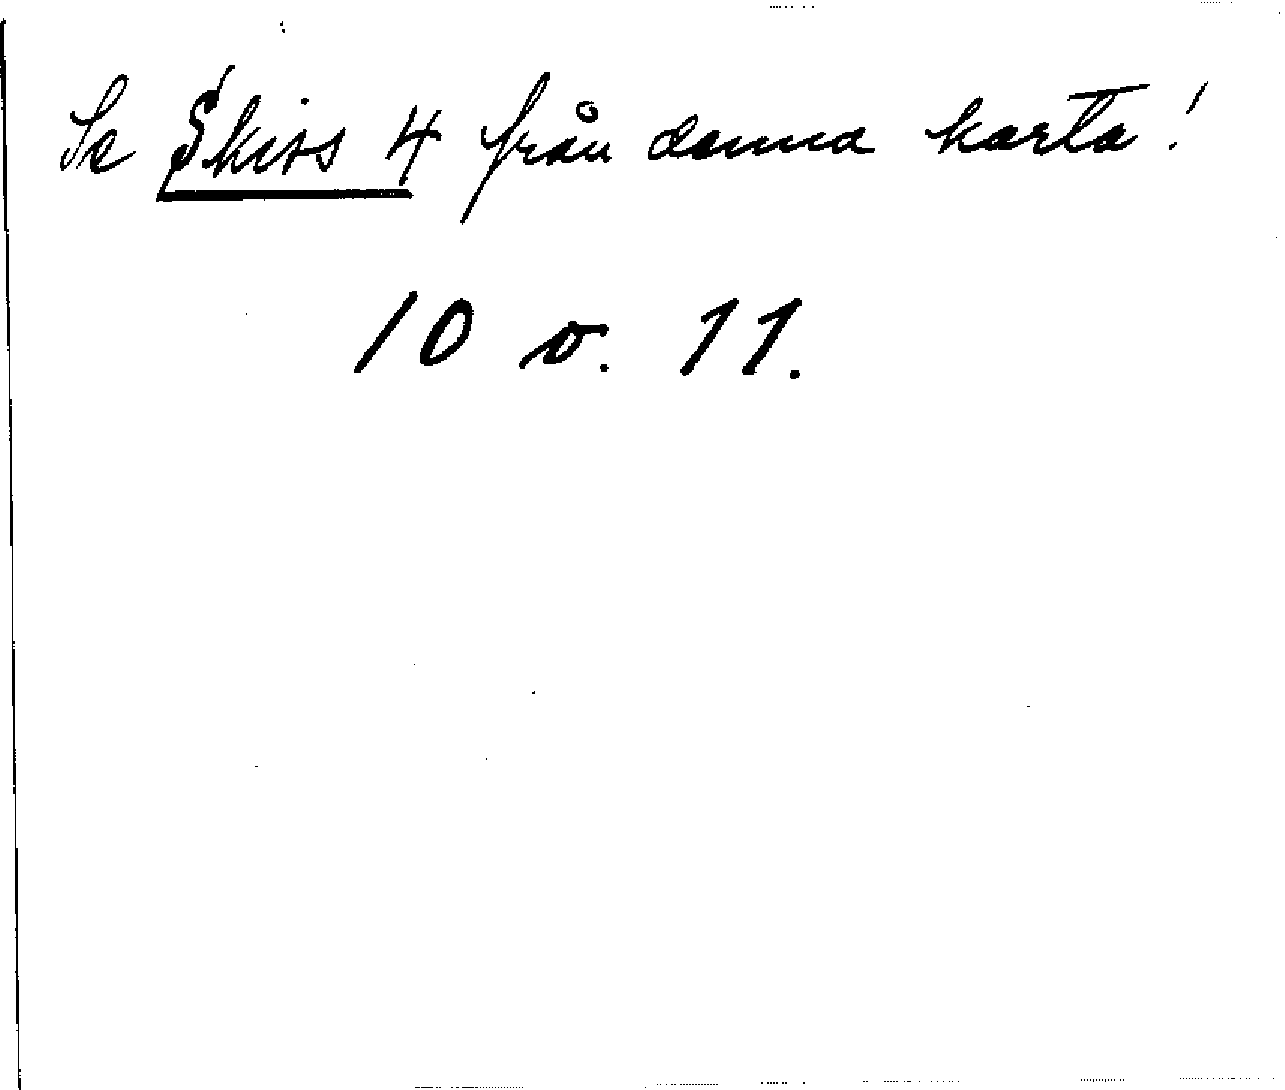 Se Skiss 4 från denna karta!
10 o. 11.